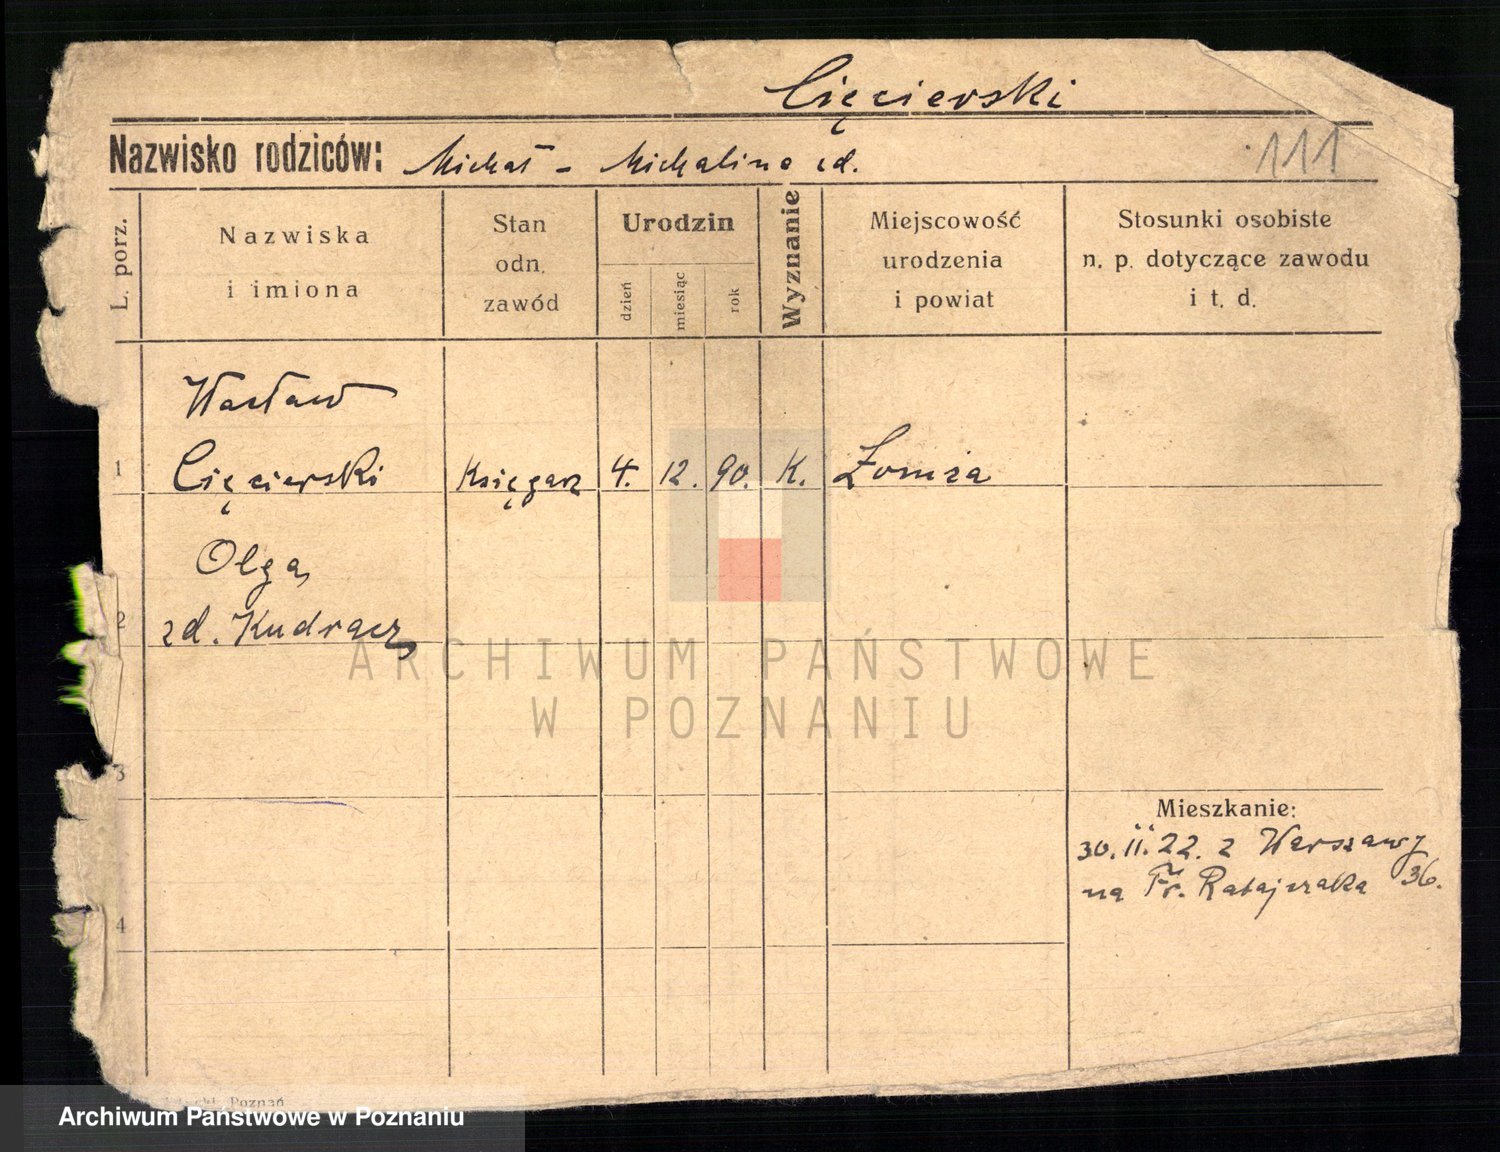 Cięcierski
Nazwisko rodziców: Michał - Michalina zd.
111
L. porz.
Nazwiska
i imiona
Stan
odn.
zawód
Urodzin
dzień
miesiąc
rok
Wyznanie
Miejscowość
urodzenia
i powiat
Stosunki osobiste
n. p. dotyczące zawodu
i t. d.
Wacław
1 Cięcierski Księgarz 4. 12. 90. K. Łomża
Olga
2 zd. Kudracz
ARCHIWUM PAŃSTWOWE
W POZNANIU
3
Mieszkanie:
30. 11. 22. z Warszawy
na Fr. Ratajczaka 36.
4
Poznań
Archiwum Państwowe w Poznaniu